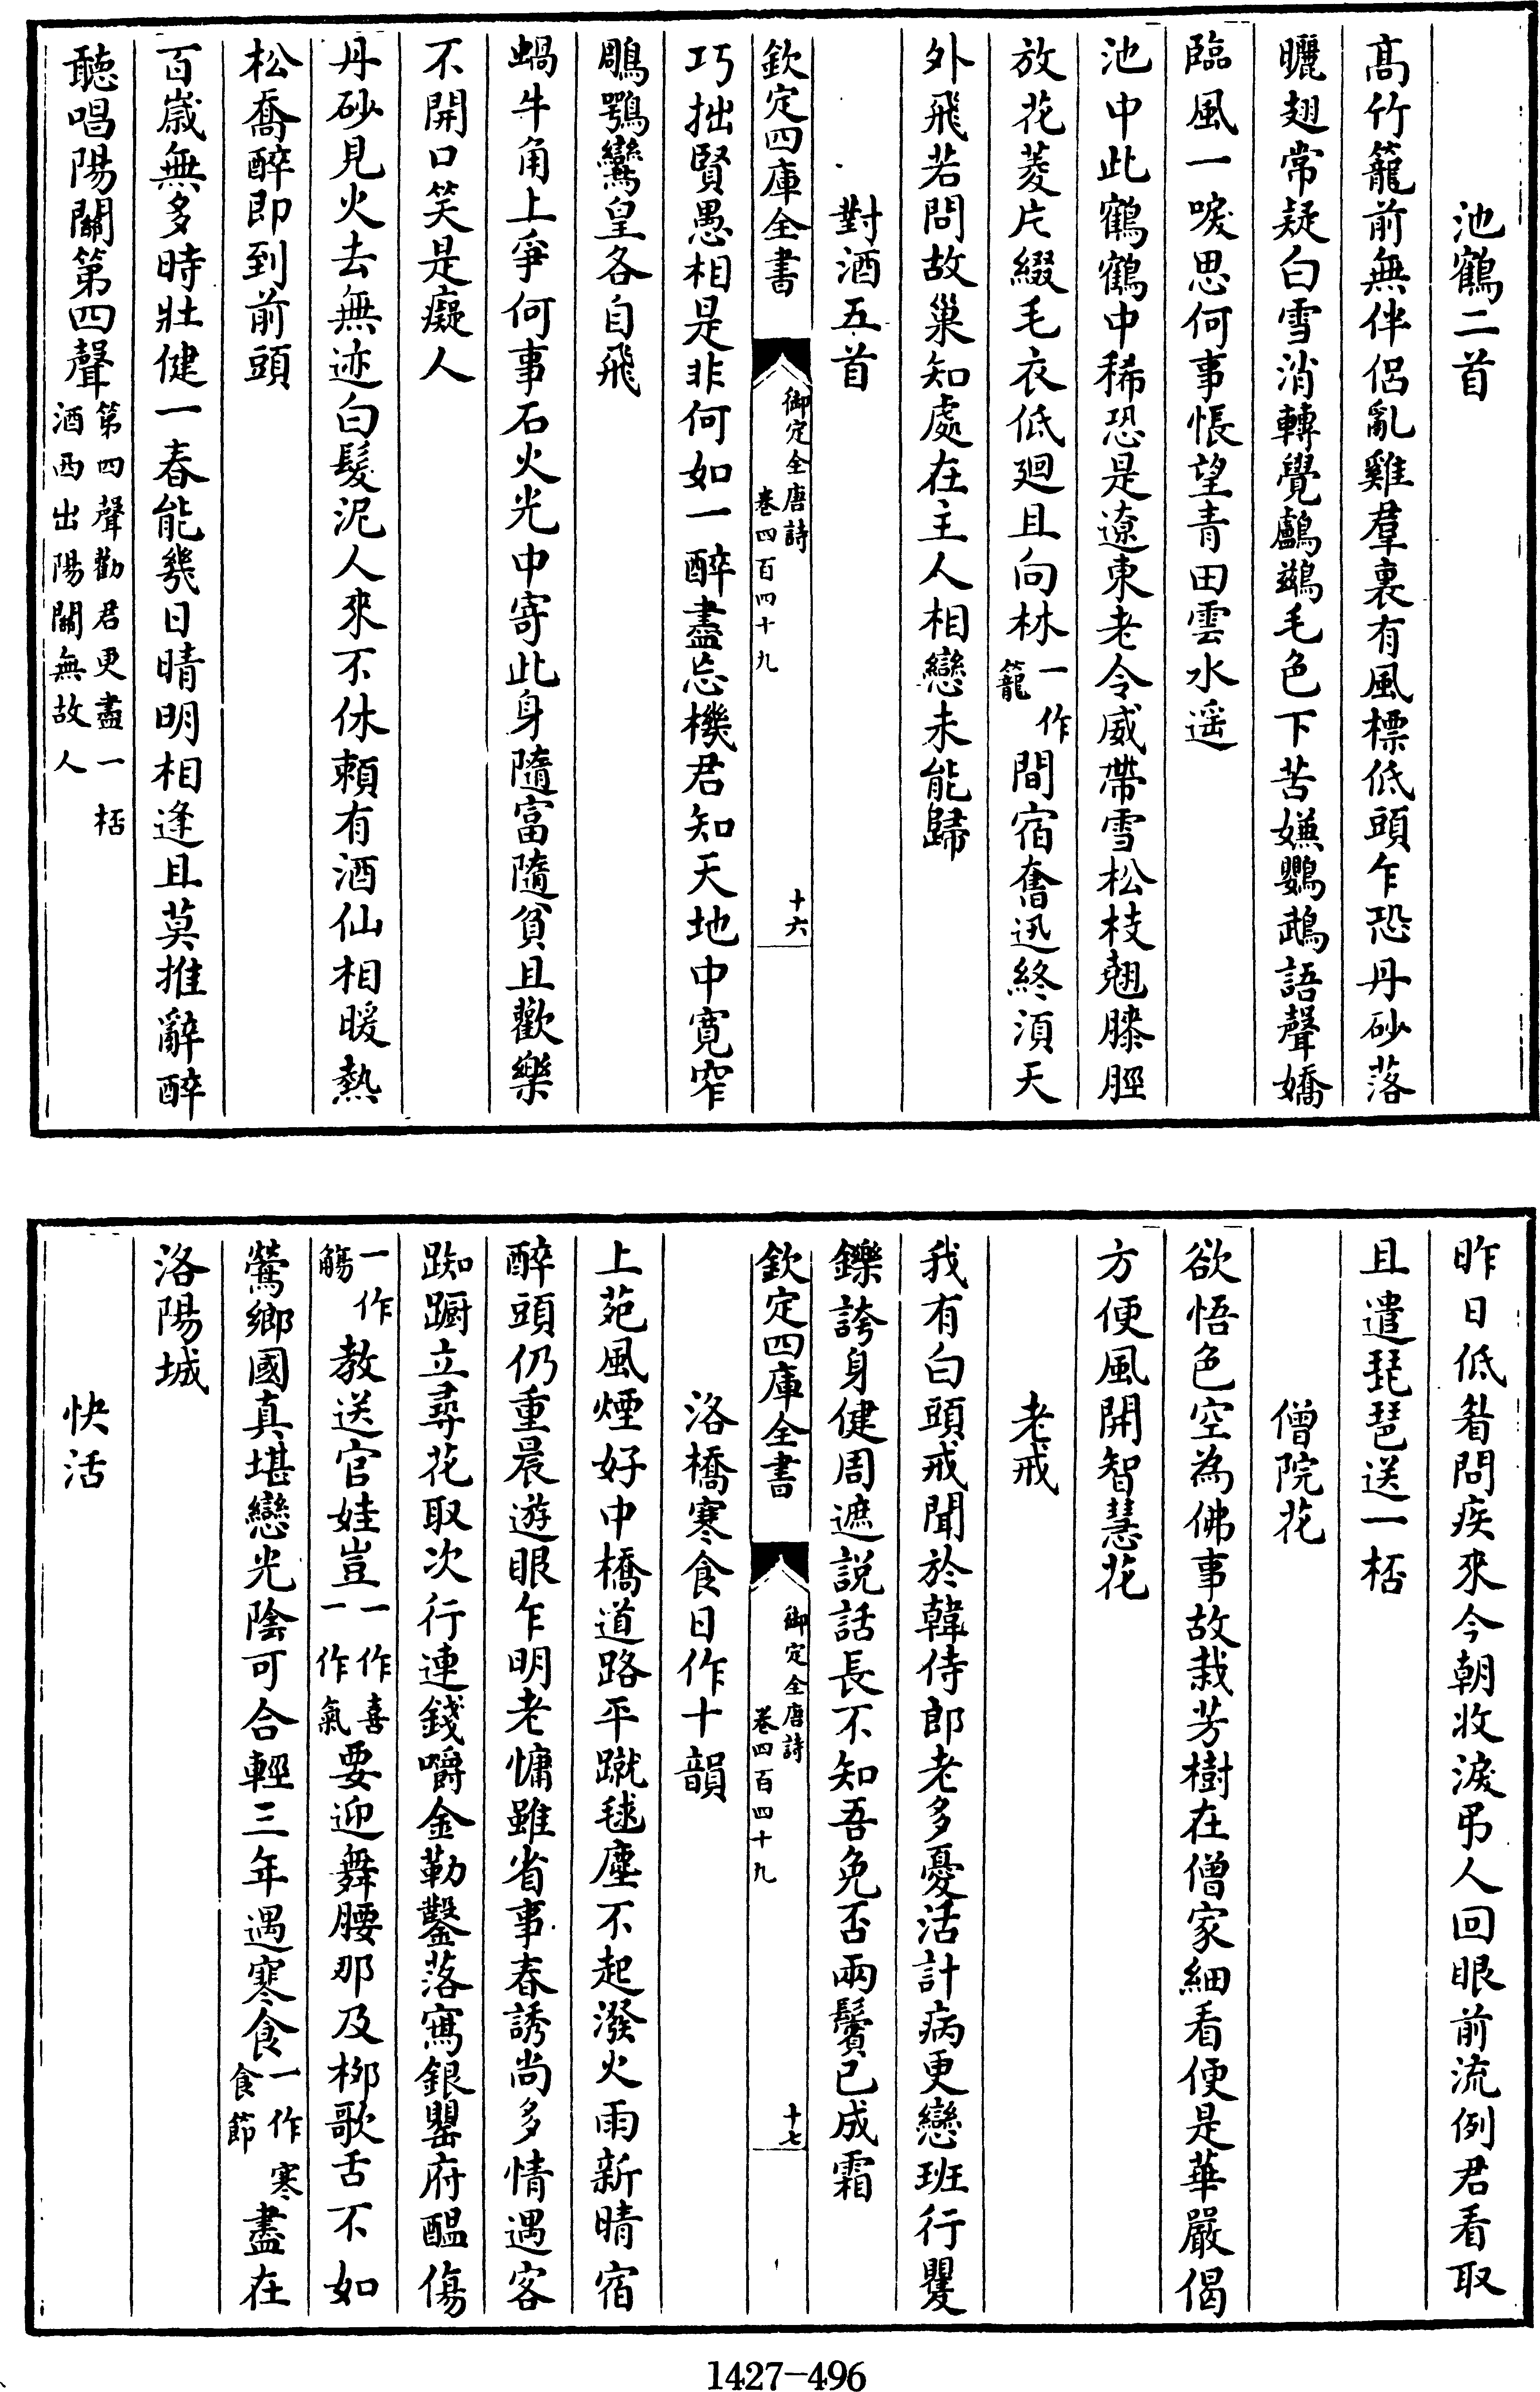 池鶴二首
髙竹籠前無伴侶亂雞羣裏有風標低頭乍恐丹砂落
曬翅常疑白雪消轉覺鸕鷀毛色下苦嫌鸚鵡語聲嬌
臨風一唳思何事悵望青田雲水遥
池中此鶴鶴中稀恐是遼東老令威帶雪松枝翹膝脛
放花菱片綴毛衣低廻且向林一作籠間宿奮迅終湏天
外飛若問故巢知處在主人相戀未能歸
對酒五首
欽定四庫全書
御定全唐詩
卷四百四十九
十六
巧拙賢愚相是非何如一醉盡忘機君知天地中寛窄
鵰鶚鸞皇各自飛
蝸牛角上爭何事石火光中寄此身隨富隨貧且歡樂
不開口笑是癡人
丹砂見火去無迹白髮泥人來不休賴有酒仙相暖熱
松喬醉即到前頭
百歲無多時壯健一春能幾日晴明相逢且莫推辭醉
聽唱陽關第四聲第四聲勸君更盡一桮酒西出陽關無故人
昨日低眉問疾來今朝收淚弔人回眼前流例君看取
且遣琵琶送一桮
僧院花
欲悟色空為佛事故栽芳樹在僧家細看便是華嚴偈
方便風開智慧花
老戒
我有白頭戒聞於韓侍郎老多憂活計病更戀班行矍
鑠誇身健周遮説話長不知吾免否兩鬢已成霜
欽定四庫全書
御定全唐詩
卷四百四十九
十七
洛橋寒食日作十韻
上苑風煙好中橋道路平蹴毬塵不起潑火雨新晴宿
醉頭仍重晨遊眼乍明老慵雖省事春誘尚多情遇客
踟蹰立尋花取次行連錢嚼金勒鑿落寫銀罌府醖傷
一作觴教送官娃豈一作喜一作氣要迎舞腰那及栁歌舌不如
鶯鄉國真堪戀光陰可合輕三年遇寒食一作寒食節盡在
洛陽城
快活
1427-496